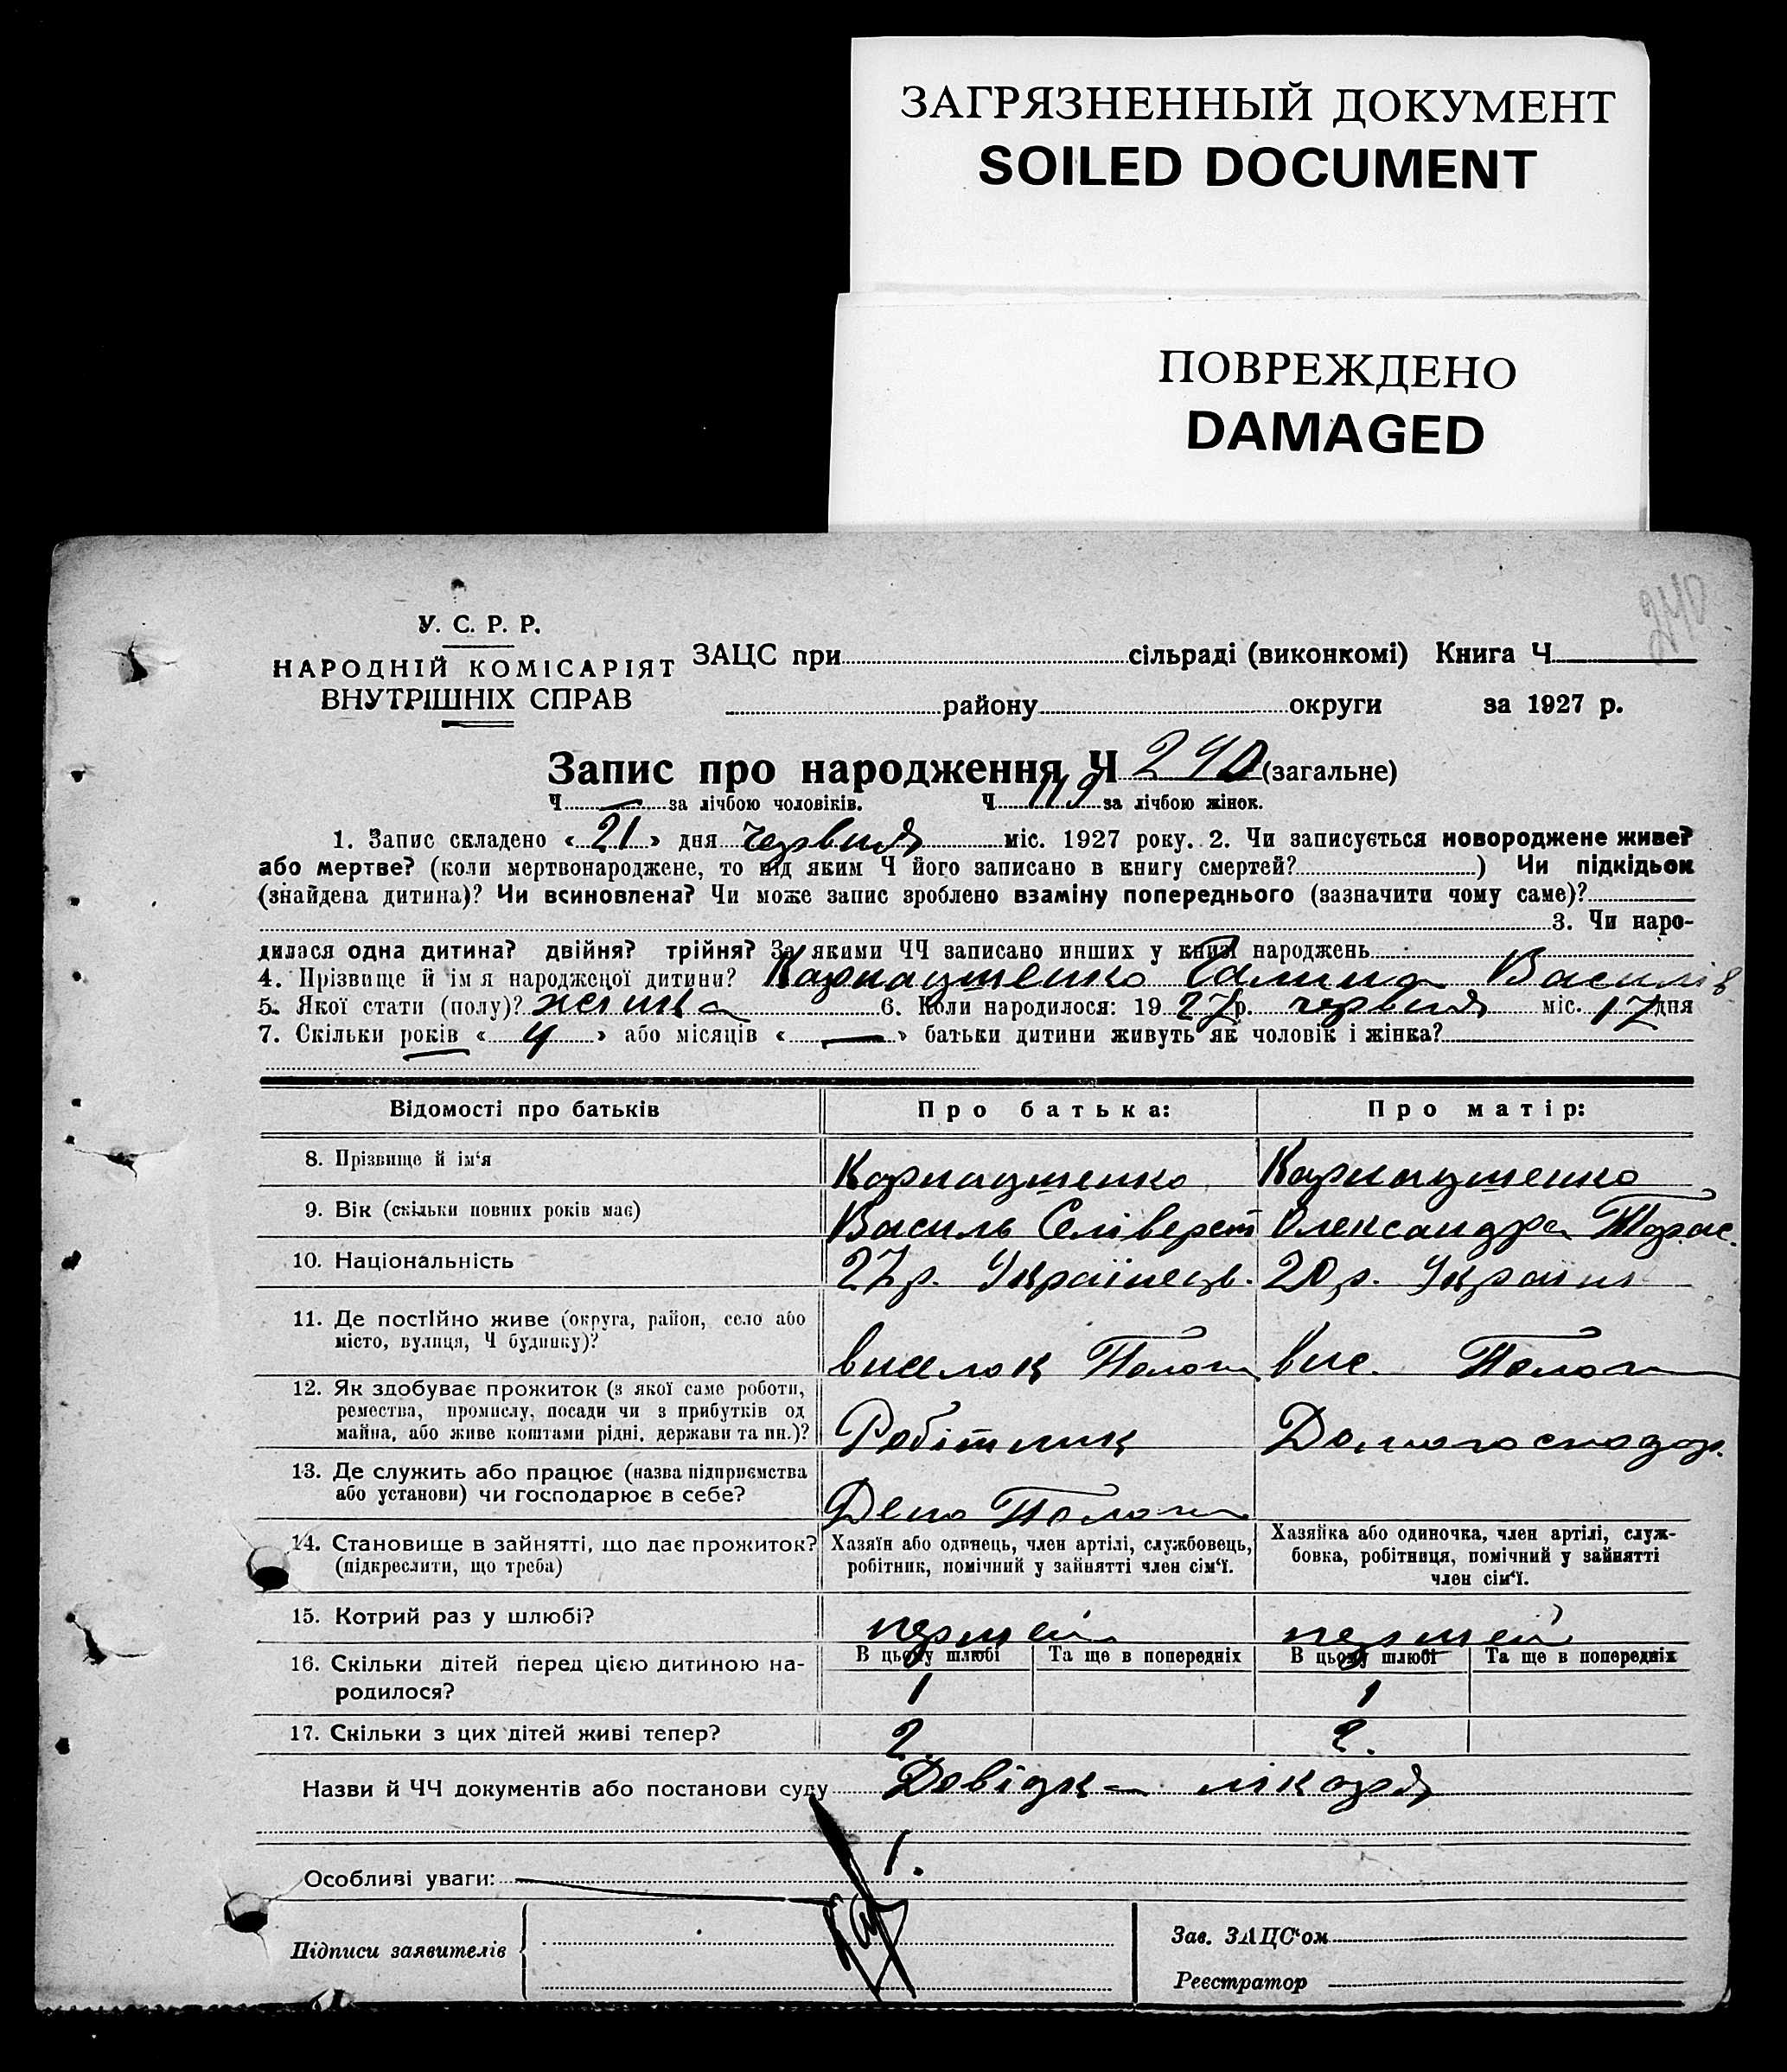 ЗАГРЯЗНЕННЫЙ ДОКУМЕНТ
SOILED DOCUMENT
ПОВРЕЖДЕНО
DAMAGED
240
У. С. Р. Р.
НАРОДНІЙ КОМІСАРІЯТ
ВНУТРІШНІХ СПРАВ
ЗАЦС при сільраді (виконкомі) Книга Ч.
району округи за 1927 р.
Запис про народження Ч 240 (загальне)
Ч — за лічбою чоловіків. Ч 119 за лічбою жінок.
1. Запис складено «21» дня червня міс. 1927 року. 2. Чи записується новороджене живе?
або мертве? (коли мертвонароджене, то під яким Ч його записано в книгу смертей? ) Чи підкідьок
(знайдена дитина)? Чи всиновлена? Чи може запис зроблено взаміну попереднього (зазначити чому саме)?
3. Чи наро-
дилася одна дитина? двійня? трійня? За якими ЧЧ записано инших у книзі народжень
4. Прізвище й ім я народженої дитини? Карнаушенко Галина Василів
5. Якої стати (полу)? жінка 6. Коли народилося: 1927 р. червня міс. 17 дня
7. Скільки років «4» або місяців «—» батьки дитини живуть як чоловік і жінка?
Відомості про батьків Про батька: Про матір:
8. Прізвище й ім‘я Карнаушенко Карнаушенко
9. Вік (скільки повних років має) Василь Селіверст Олександра Тарас.
10. Національність 27 р. Українець. 20 р. Україн
11. Де постійно живе (округа, район, село або
місто, вулиця, Ч будинку)? виселок Пологи вис. Пологи
12. Як здобуває прожиток (з якої саме роботи,
ремества, промислу, посади чи з прибутків од
майна, або живе коштами рідні, держави та ин.)? Робітник Домогосподар.
13. Де служить або працює (назва підприємства
або установи) чи господарює в себе? Депо Пологи
14. Становище в зайнятті, що дає прожиток?
(підкреслити, що треба)
Хазяїн або одинець, член артілі, службовець,
робітник, помічний у зайнятті член сім‘ї.
Хазяйка або одиночка, член артілі, служ-
бовка, робітниця, помічний у зайнятті
член сім‘ї.
15. Котрий раз у шлюбі? перший перший
В цьому шлюбі Та ще в попередніх В цьому шлюбі Та ще в попередніх
16. Скільки дітей перед цією дитиною на-
родилося? 1 1
17. Скільки з цих дітей живі тепер? 2. 2.
Назви й ЧЧ документів або постанови суду Довідка лікаря
1.
Особливі уваги:
Підписи заявителів
Зав. ЗАЦС‘ом
Реєстратор